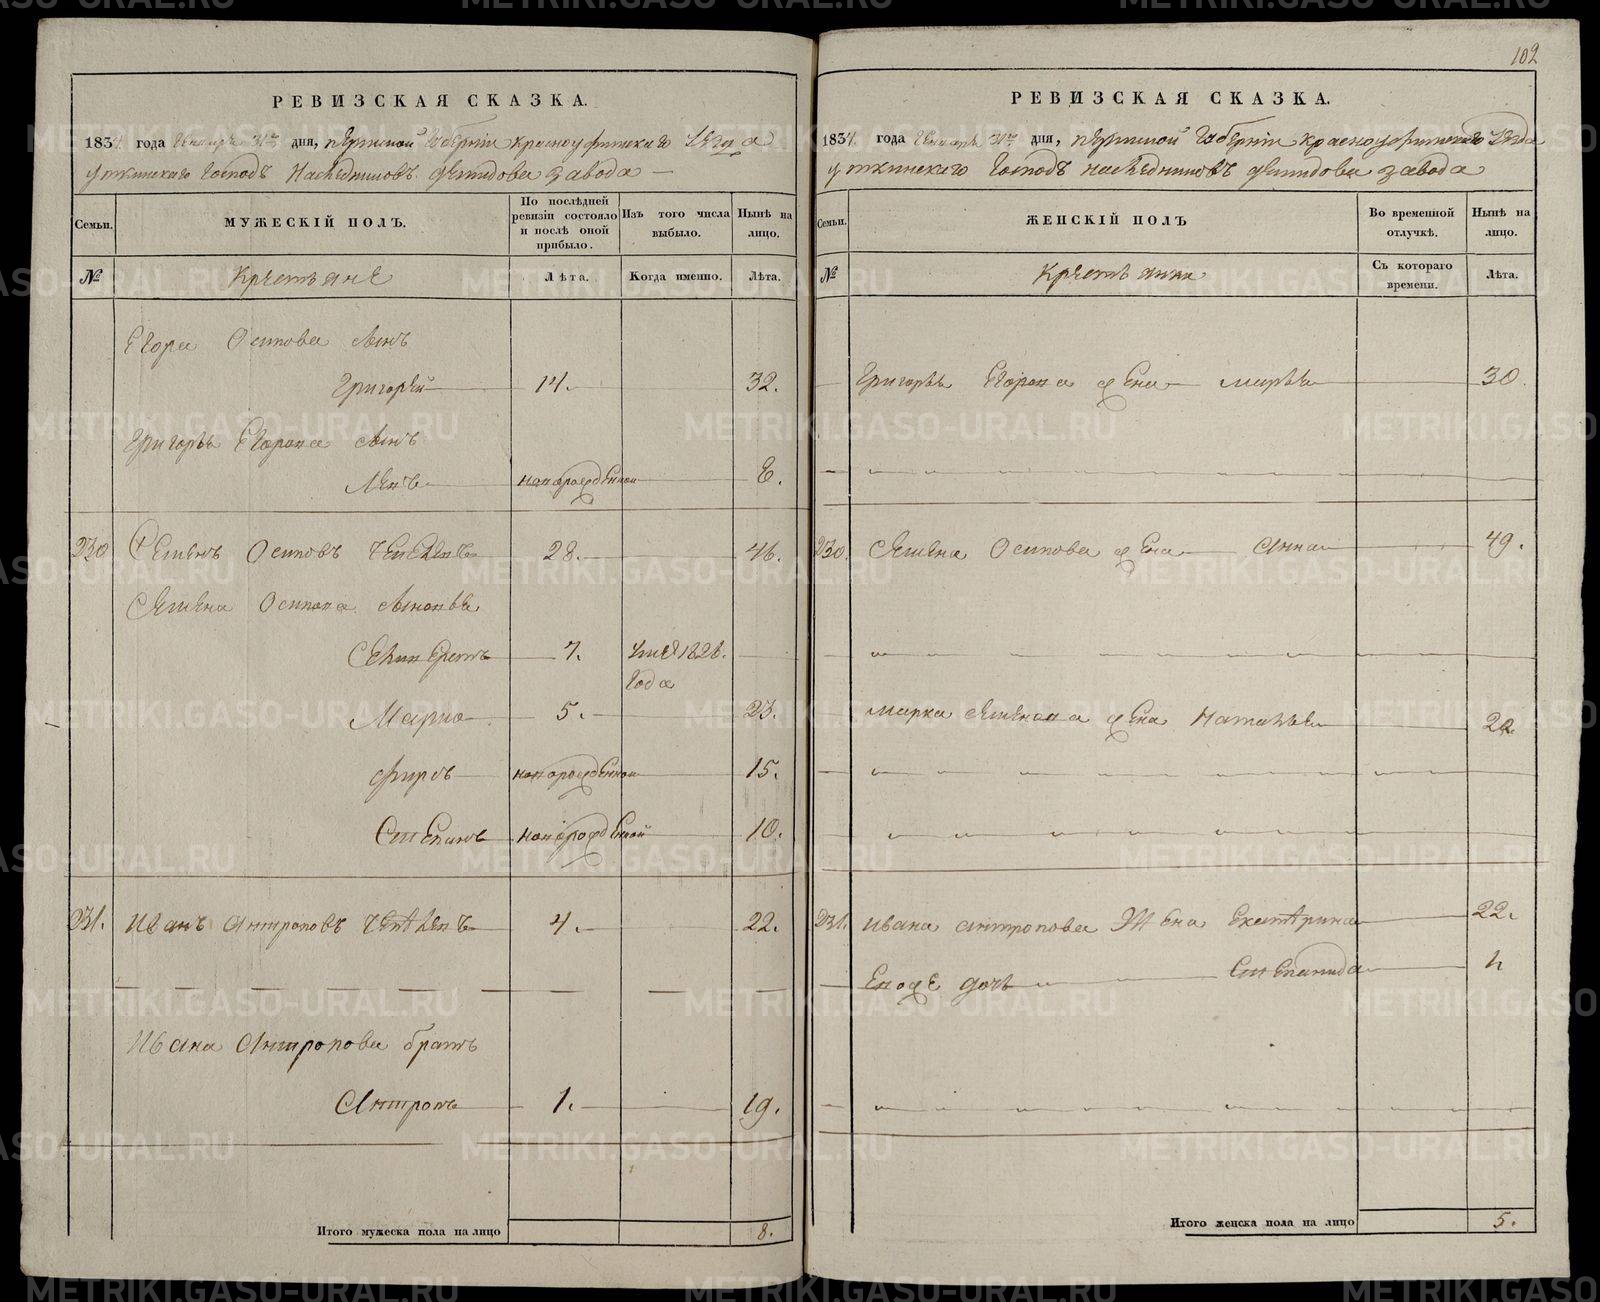 РЕВИЗСКАЯ СКАЗКА.
1834 года Генваря 31го дня, пермской Губернiи красноуфимскаго уезда
уткинскаго Господъ Наследниковъ демидова завода
Семьи.
МУЖЕСКІЙ ПОЛЪ.
По послѣдней ревизіи состояло и послѣ оной прибыло.
Изъ того числа выбыло.
Нынѣ на лицо.
№
Крестьяне
Лѣта.
Когда именно.
Лѣта.
Егора Осипова сынъ
Григорей 14. 32.
Григорья Егорова сынъ
новорожденной
230 Семенъ Осиповъ 28. 46.
Семена Осипова сыновья
7. 1826.
года
Марко 5. 23.
фирсъ новорожденной 15.
Степанъ новорожденной 10.
231. Иванъ Антроповъ 4. 22.
Ивана Антропова братъ
Антропъ 1. 19.
Итого мужеска пола на лицо 8.
102
РЕВИЗСКАЯ СКАЗКА.
1834 года Генваря 31го дня, пермской Губернiи красноуфимскаго уезда
уткинскаго Господъ наследниковъ демидова завода
Семьи.
ЖЕНСКІЙ ПОЛЪ
Во временной отлучкѣ.
Нынѣ на лицо.
№
Крестьянки
Съ котораго времени.
Лѣта.
Григорья Егорова жена марья 30.
230. Семена Осипова жена Анна 49.
марка семенова жена Наталья
231. ивана антропова жена Екатерина 22.
Евоже дочь Степанида
Итого женска пола на лицо 5.
METRIKI.GASO-URAL.RU